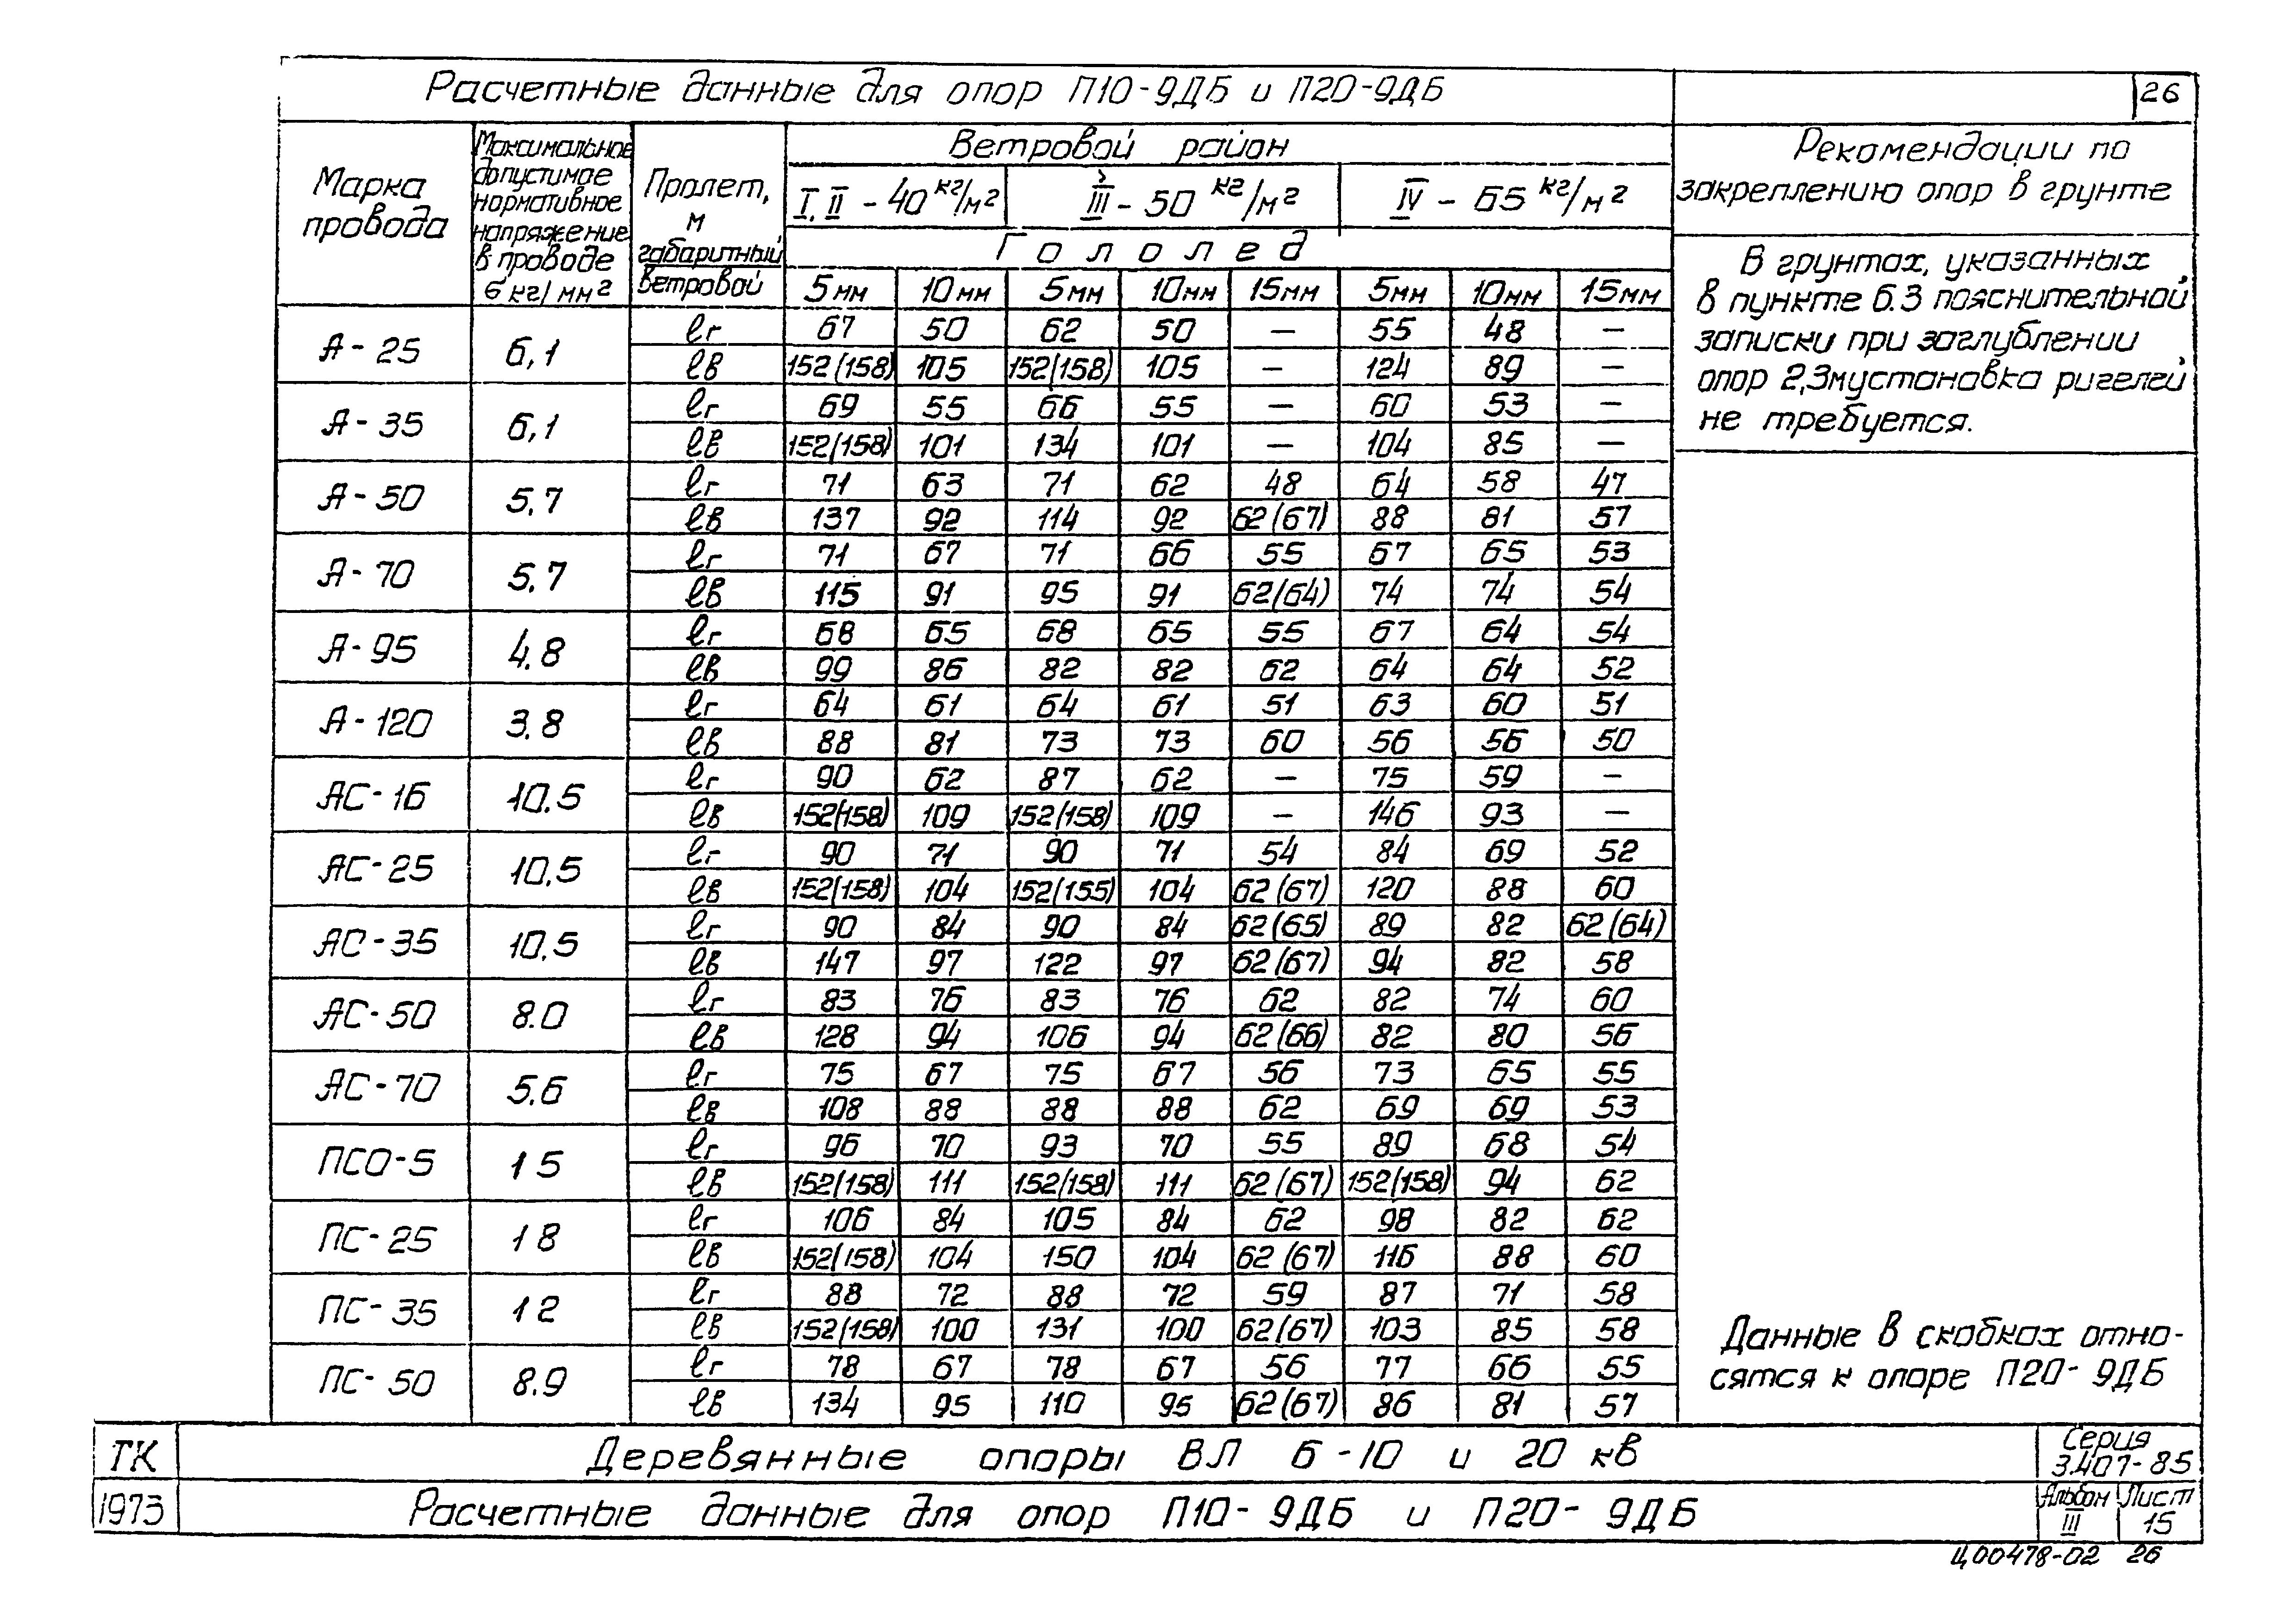 Расчетные данные для опор П10-9ДБ и П20-9ДБ
26
Марка провода
Максимальное допустимое нормативное напряжение в проводе σ кг/мм²
Пролет, м габаритный ветровой
Ветровой район
I, II - 40 кг/м² III - 50 кг/м² IV - 65 кг/м²
Гололед
5мм 10мм 5мм 10мм 15мм 5мм 10мм 15мм
А-25 6,1 lг 67 50 62 50 — 55 48 —
lв 152(158) 105 152(158) 105 — 124 89 —
А-35 6,1 lг 69 55 66 55 — 60 53 —
lв 152(158) 101 134 101 — 104 85 —
А-50 5,7 lг 71 63 71 62 48 64 58 47
lв 137 92 114 92 62(67) 88 81 57
А-70 5,7 lг 71 67 71 66 55 67 65 53
lв 115 91 95 91 62(64) 74 74 54
А-95 4,8 lг 68 65 68 65 55 67 64 54
lв 99 86 82 82 62 64 64 52
А-120 3,8 lг 64 61 64 61 51 63 60 51
lв 88 81 73 73 60 56 56 50
АС-16 10,5 lг 90 62 87 62 — 75 59 —
lв 152(158) 109 152(158) 109 — 146 93 —
АС-25 10,5 lг 90 71 90 71 54 84 69 52
lв 152(158) 104 152(155) 104 62(67) 120 88 60
АС-35 10,5 lг 90 84 90 84 62(65) 89 82 62(64)
lв 147 97 122 97 62(67) 94 82 58
АС-50 8.0 lг 83 76 83 76 62 82 74 60
lв 128 94 106 94 62(66) 82 80 56
АС-70 5.6 lг 75 67 75 67 56 73 65 55
lв 108 88 88 88 62 69 69 53
ПСО-5 15 lг 96 70 93 70 55 89 68 54
lв 152(158) 111 152(158) 111 62(67) 152(158) 94 62
ПС-25 18 lг 106 84 105 84 62 98 82 62
lв 152(158) 104 150 104 62(67) 116 88 60
ПС-35 12 lг 88 72 88 72 59 87 71 58
lв 152(158) 100 131 100 62(67) 103 85 58
ПС-50 8.9 lг 78 67 78 67 56 77 66 55
lв 134 95 110 95 62(67) 86 81 57
Рекомендации по
закреплению опор в грунте
В грунтах, указанных
в пункте 6.3 пояснительной
записки при заглублении
опор 2,3м установка ригелей
не требуется.
Данные в скобках отно-
сятся к опоре П20-9ДБ
ТК
1973
Деревянные опоры ВЛ 6-10 и 20 кв
Расчетные данные для опор П10-9ДБ и П20-9ДБ
Серия
3.407-85
Альбом Лист
III 15
Ц00478-02 26